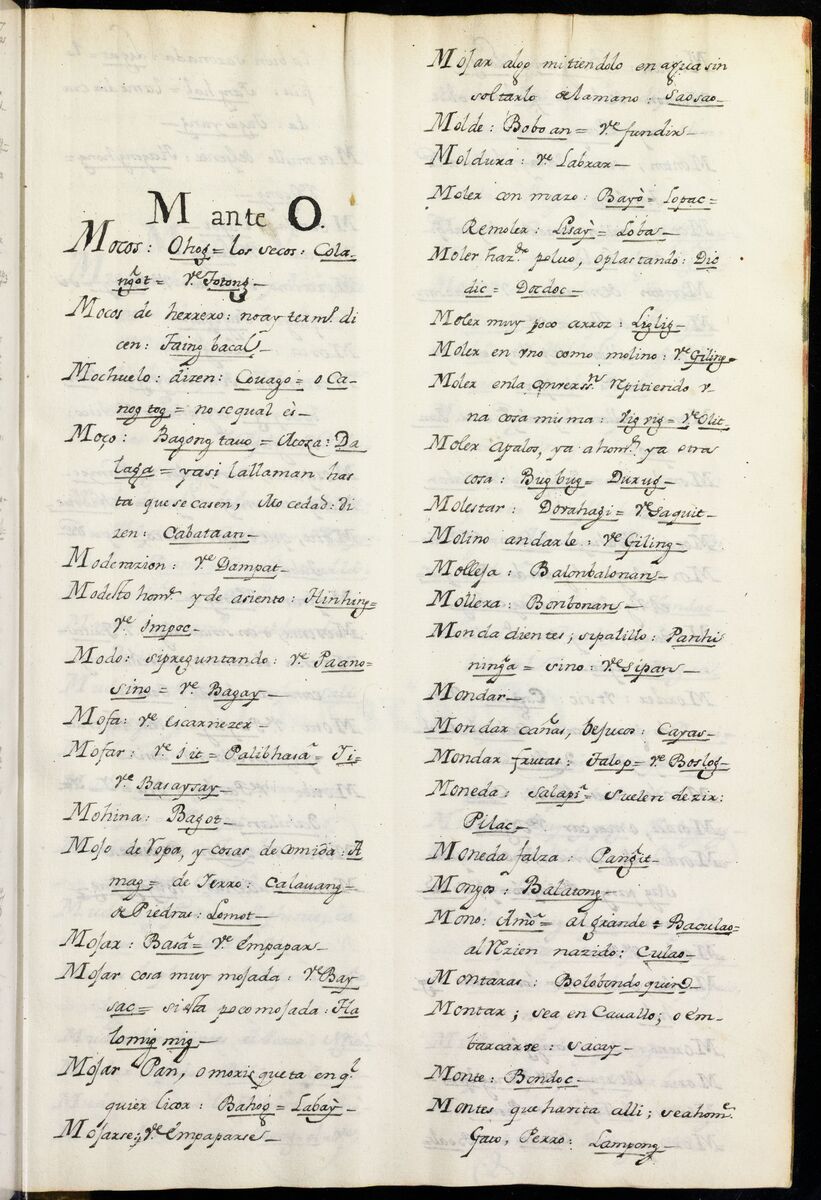 M ante O.
Mocos: Ohog = los secos: Cola-
ngot = Ve Totong —
Mocos de herrero: no ay termo. di
cen: Taing bacal —
Mochuelo: dizen: Couago = o Ca-
nog tog = no se qual és —
Moço: Bagong tauo = Moza: Da
laga = y asi la llaman has
ta que se casen, Mocedad: di
zen: Cabataan —
Moderazion: Ve Dampat —
Modesto home. y de asiento: Hinhing =
Ve Impoc —
Modo: si preguntando: Ve Paano =
sino = Ve Bagay —
Mofa: Ve escarnezer —
Mofar: Ve Sit = Palibhasa = Ti =
Ve Basaysay —
Mohina: Bagot —
Mojo de ropa, y cosas de comida: A
mag = de Ierro: Calauang —
de Piedras: Lomot —
Mojar: Basa = Ve Empapar —
Mojar cosa muy mojada: Ve Bay
sac = si esta poco mojada: Ha
lomig mig —
Mojar Pan, o morisqueta en ql.
quier licor: Bahog = Labay —
Mojarse; Ve Empaparse —
Mojar algo mitiendolo en agua sin
soltarlo de la mano: Saosao —
Molde: Boboan = Ve fundir —
Moldura: Ve Labrar —
Moler con mazo: Bayò = Lopac =
Remoler: Lisay = Loba —
Moler hazdo. poluo, o plastando: Dic
dic = Docdoc —
Moler muy poco arroz: Liglig —
Moler en vno como molino: Ve Giling =
Moler en la repitiendo v
na cosa misma: Vig vig = Ve Olit
Moler apalos, ya a home. ya otra
cosa: Bugbug = Durug —
Molestar: Dorahagi = Ve Saquit —
Molino andarle: Ve Giling —
Molleja: Balonbalonan —
Mollera: Bonbonan —
Monda dientes; si palillo: Panhi
ninga = sino: Ve Sipan —
Mondar —
Mondar cañas, bejucos: Cayas —
Mondar frutas: Talop = Ve Boslog —
Moneda: Salapi = suelen dezir:
Pilac —
Moneda falza: Pangit —
Mongos: Balatong —
Mono: Amo = al grande = Baculao =
al rezien nazido: Culao —
Montaras: Bolobondoquin —
Montar; sea en Cauallo; o em-
barcarse: Sacay —
Monte: Bondoc —
Montes que harita alli; sea home.
Gato, Perro: Lampong —